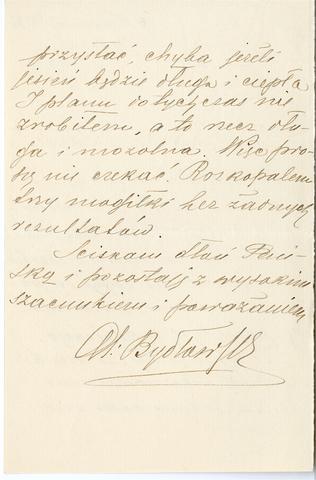 przysłać, chyba jeżeli
jesień będzie długa i ciepła
I planu dotychczas nie
zrobiłem, a to rzecz dłu-
ga i mozolna. Więc pro-
szę nie czekać. Rozkopałem
trzy mogiłki bez żadnych
rezultatów.
Ściskam dłoń Pań-
ską i pozostaję z wysokim
szacunkiem i poważaniem